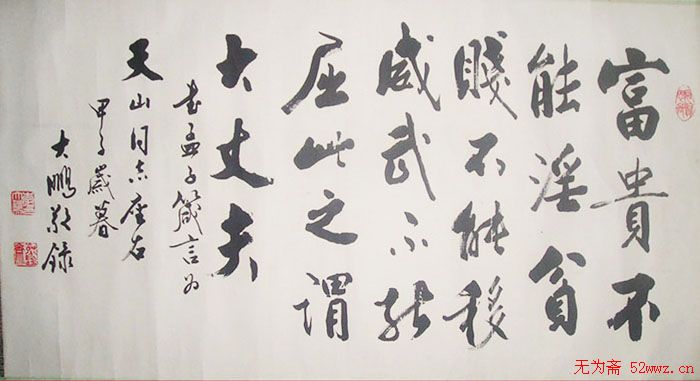 富貴不
能淫貧
賤不能移
威武不能
屈此之謂
大丈夫
书孟子箴言为
天山同志座右
甲子歲暮
大鹏敬録
无为斋 52wwz.cn